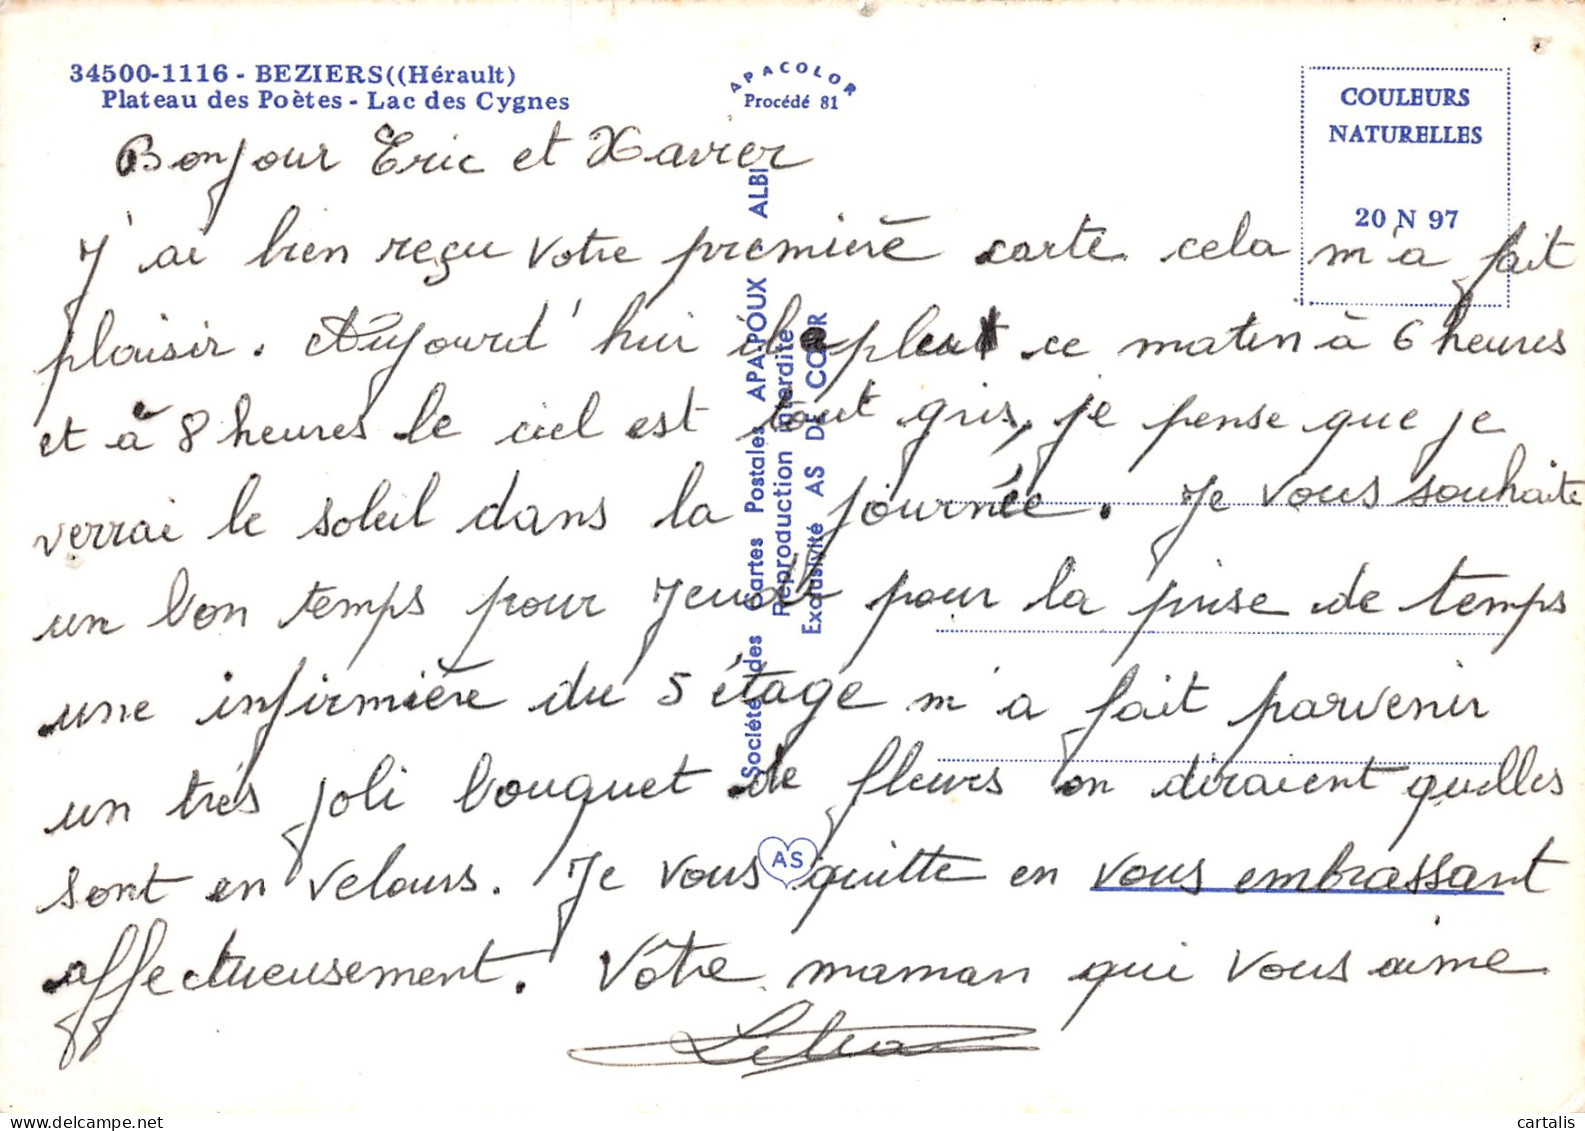 34500-1116 - BEZIERS((Hérault)
Plateau des Poètes - Lac des Cygnes
APACOLOR
Procédé 81
COULEURS
NATURELLES
20 N 97
Bonjour Eric et Xavier
J'ai bien reçu votre première carte cela m'a fait
plaisir. Aujourd'hui il a plut ce matin à 6 heures
et à 8 heures le ciel est tout gris, je pense que je
verrai le soleil dans la journée. Je vous souhaite
un bon temps pour Jeudi pour la prise de temps
une infirmière du 5 étage m'a fait parvenir
un très joli bouquet de fleurs on diraient quelles
sont en velours. Je vous quitte en vous embrassant
affectueusement. Votre maman qui vous aime
Société des Cartes Postales APA-POUX - ALBI
Reproduction interdite
Exclusivité AS DE CŒUR
AS
cartalis